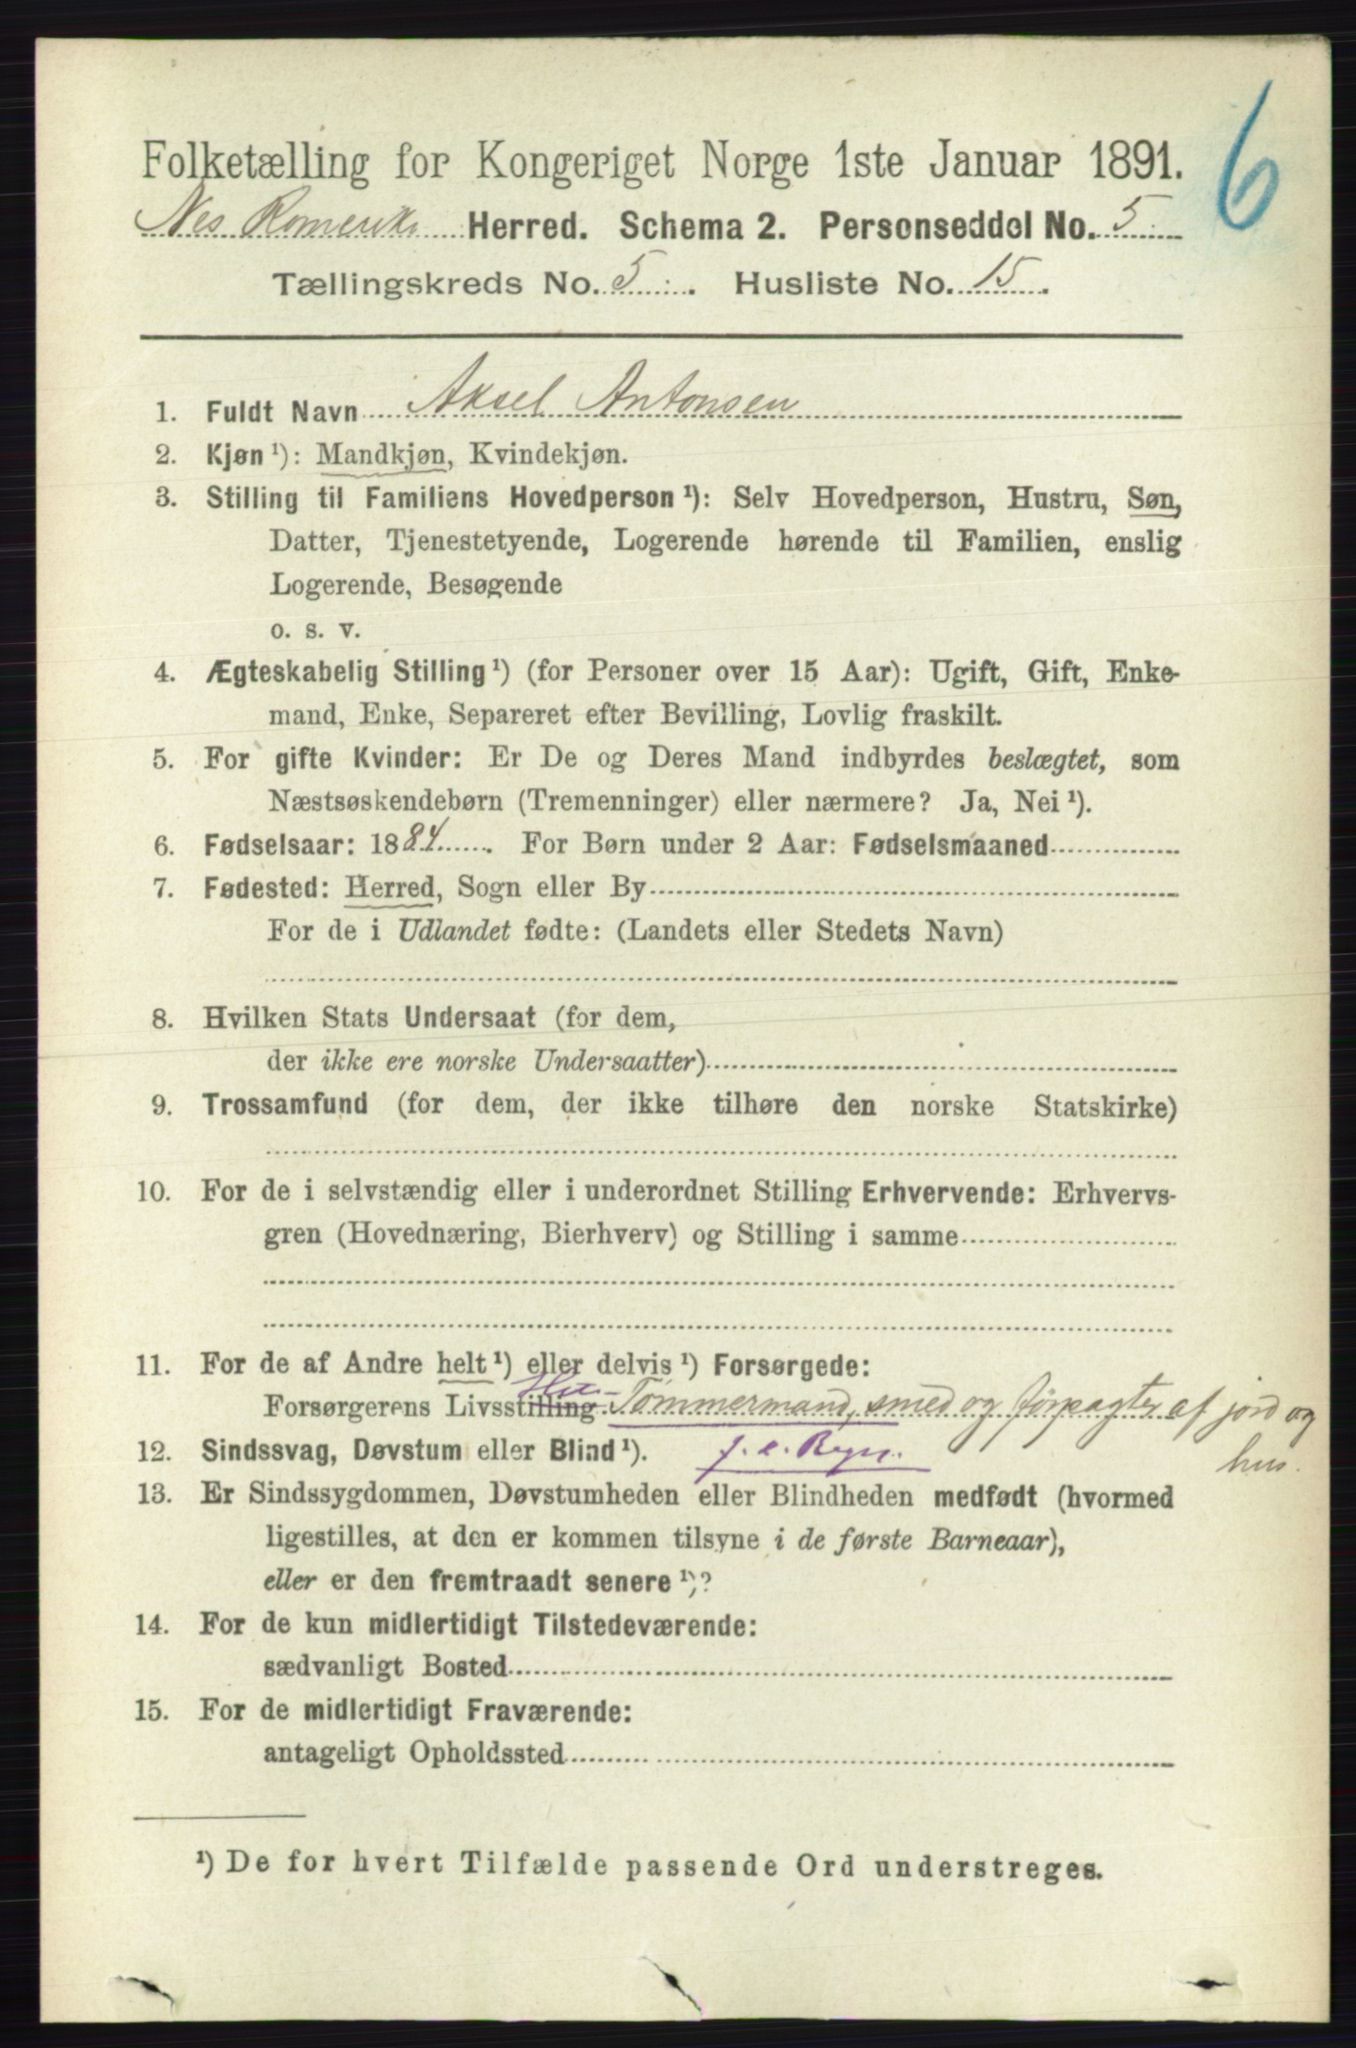 6
Folketælling for Kongeriget Norge 1ste Januar 1891.
Nes Romerike Herred. Schema 2. Personseddel No. 5.
Tællingskreds No. 5. Husliste No. 15.
1. Fuldt Navn Aksel Antonsen
2. Kjøn ¹): Mandkjøn, Kvindekjøn.
3. Stilling til Familiens Hovedperson ¹): Selv Hovedperson, Hustru, Søn,
Datter, Tjenestetyende, Logerende hørende til Familien, enslig
Logerende, Besøgende
o. s. v.
4. Ægteskabelig Stilling ¹) (for Personer over 15 Aar): Ugift, Gift, Enke-
mand, Enke, Separeret efter Bevilling, Lovlig fraskilt.
5. For gifte Kvinder: Er De og Deres Mand indbyrdes beslægtet, som
Næstsøskendebørn (Tremenninger) eller nærmere? Ja, Nei ¹).
6. Fødselsaar: 1884. For Børn under 2 Aar: Fødselsmaaned
7. Fødested: Herred, Sogn eller By
For de i Udlandet fødte: (Landets eller Stedets Navn)
8. Hvilken Stats Undersaat (for dem,
der ikke ere norske Undersaatter)
9. Trossamfund (for dem, der ikke tilhøre den norske Statskirke)
10. For de i selvstændig eller i underordnet Stilling Erhvervende: Erhvervs-
gren (Hovednæring, Bierhverv) og Stilling i samme
11. For de af Andre helt ¹) eller delvis ¹) Forsørgede:
Forsørgerens Livsstilling Tømmermand, smed og forpagter af jord og
hus.
12. Sindssvag, Døvstum eller Blind ¹). f. e. Regn.
13. Er Sindssygdommen, Døvstumheden eller Blindheden medfødt (hvormed
ligestilles, at den er kommen tilsyne i de første Barneaar),
eller er den fremtraadt senere ¹)?
14. For de kun midlertidigt Tilstedeværende:
sædvanligt Bosted
15. For de midlertidigt Fraværende:
antageligt Opholdssted
¹) De for hvert Tilfælde passende Ord understreges.